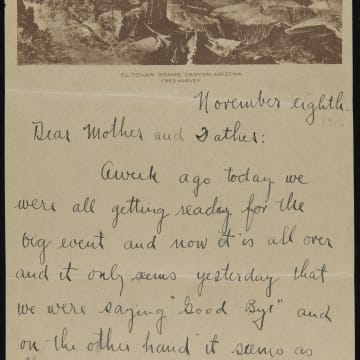 EL TOVAR GRAND CANYON ARIZONA
FRED HARVEY
November eighth.
Dear Mother and Father:
A week ago today we
were all getting ready for the
big event and now it is all over
and it only seems yesterday that
we were saying "Good Bye" and
on the other hand it seems as